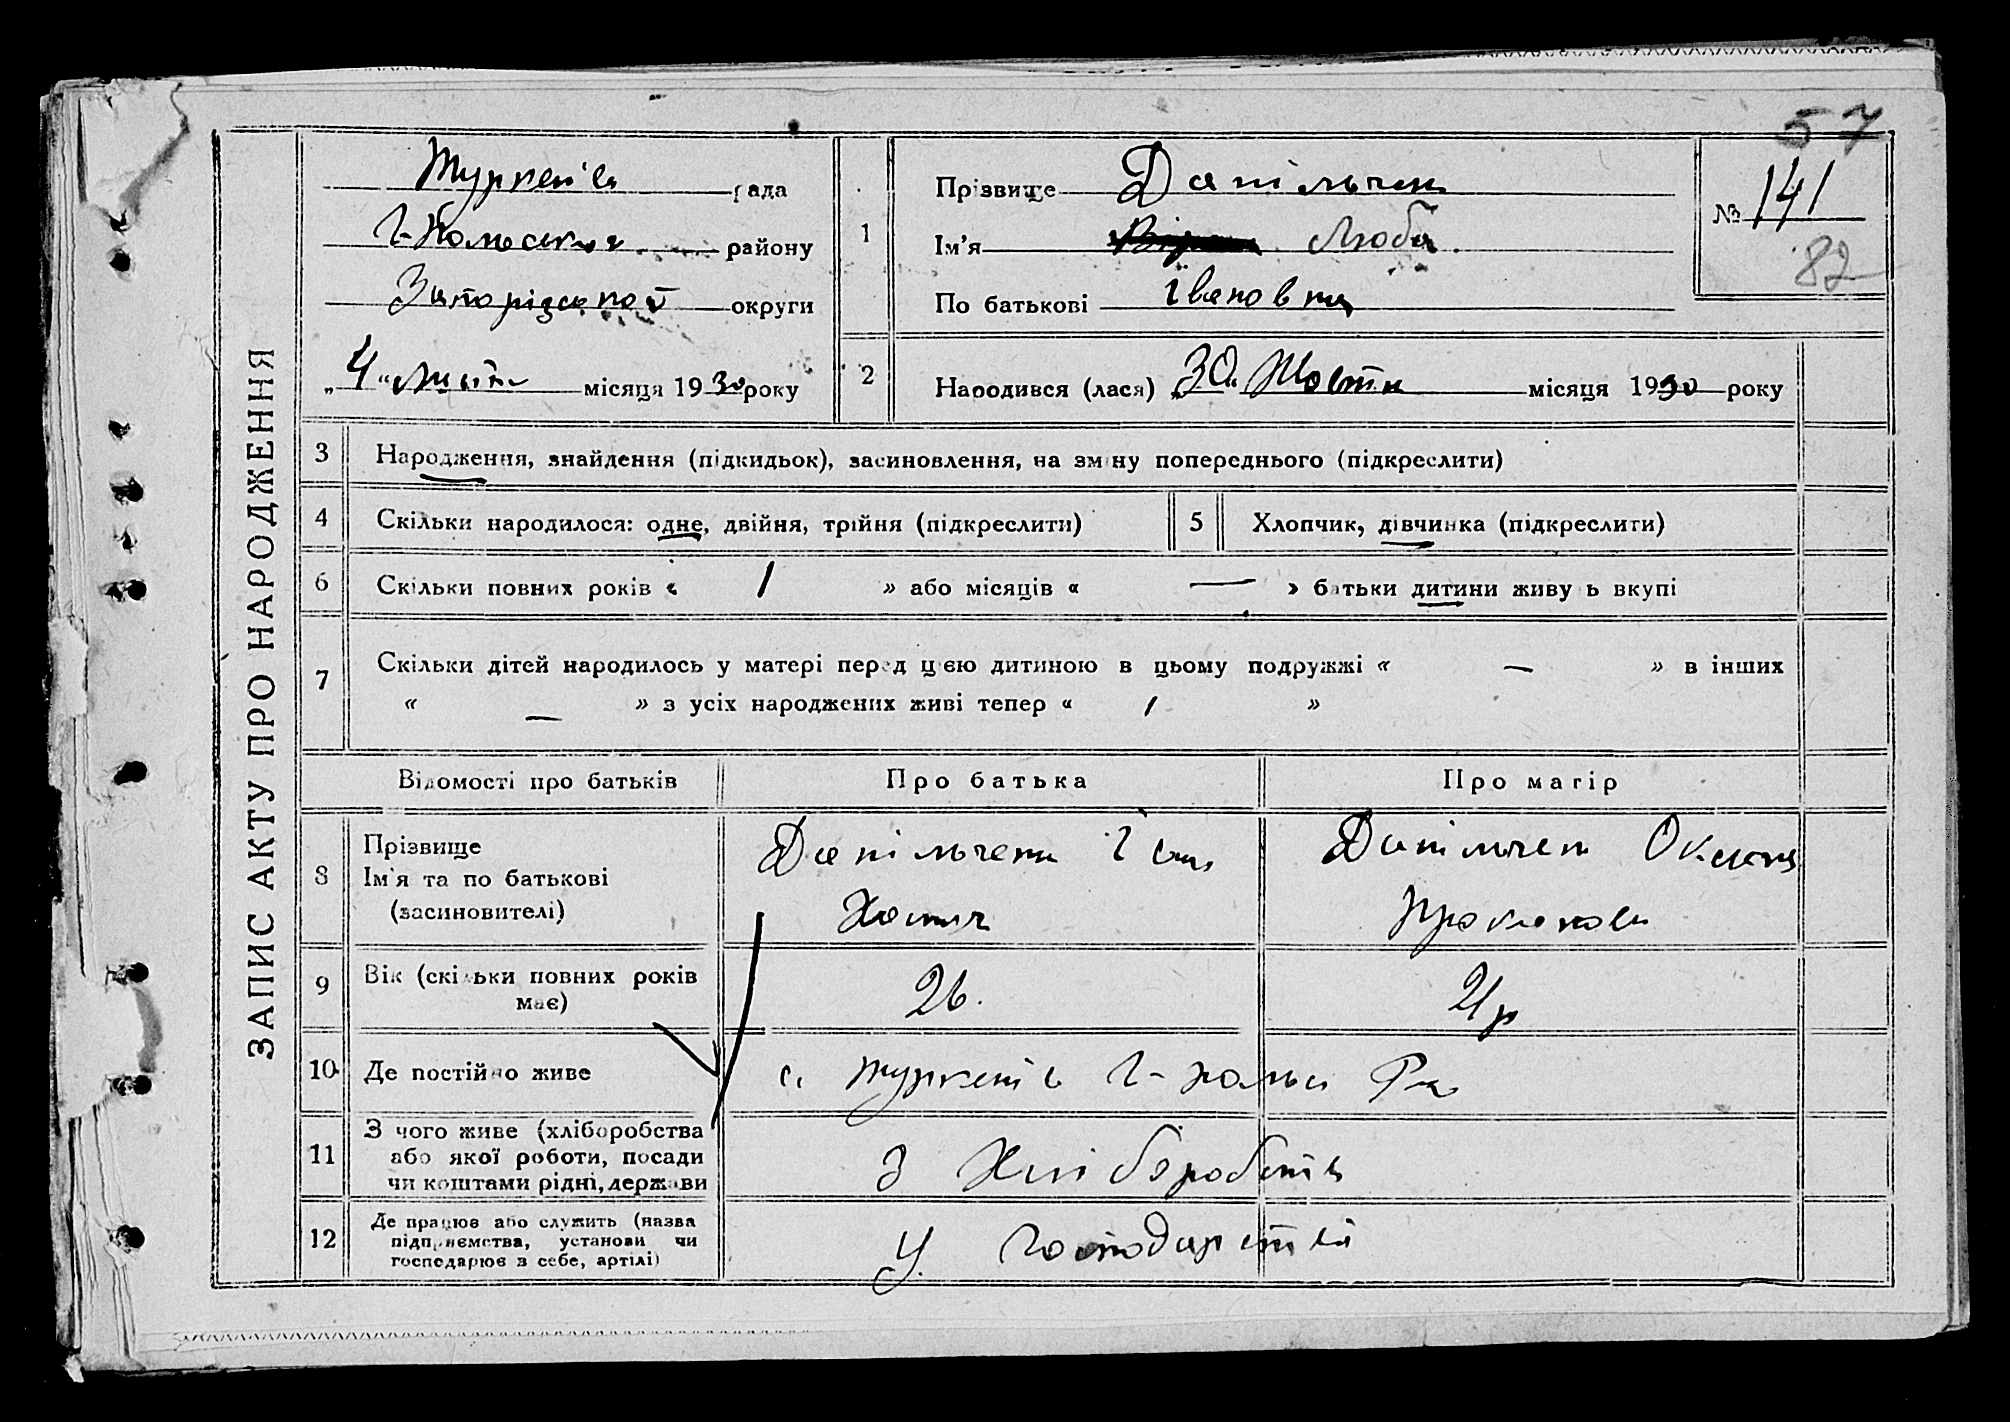 57
ЗАПИС АКТУ ПРО НАРОДЖЕННЯ
Туркенів рада
району
Запорізської округи
„4“ листп місяця 1930 року
1
Прізвище Данільчен
Ім'я Люба.
По батькові Івановна
№ 141
82
2
Народився (лася) „30„ Жовтн місяця 1930 року
3 Народження, знайдення (підкидьок), засиновлення, на зміну попереднього (підкреслити)
4 Скільки народилося: одне, двійня, трійня (підкреслити)
5 Хлопчик, дівчинка (підкреслити)
6 Скільки повних років « 1 » або місяців « — » батьки дитини живуть вкупі
7 Скільки дітей народилось у матері перед цією дитиною в цьому подружжі « — » в інших
« — » з усіх народжених живі тепер « 1 »
Відомості про батьків Про батька Про матір
8 Прізвище
Ім'я та по батькові
(засиновителі)
Данільченк Іван
Данільчен Оксана
9 Вік (скільки повних років
має)
26.
21 р
10 Де постійно живе
с. Туркенів Г-Польс Р-н
11 З чого живе (хліборобства
або якої роботи, посади
чи коштами рідні, держави
З Хліборобств
12 Де працює або служить (назва
підприємства, установи чи
господарює в себе, артілі)
У. Господарстві